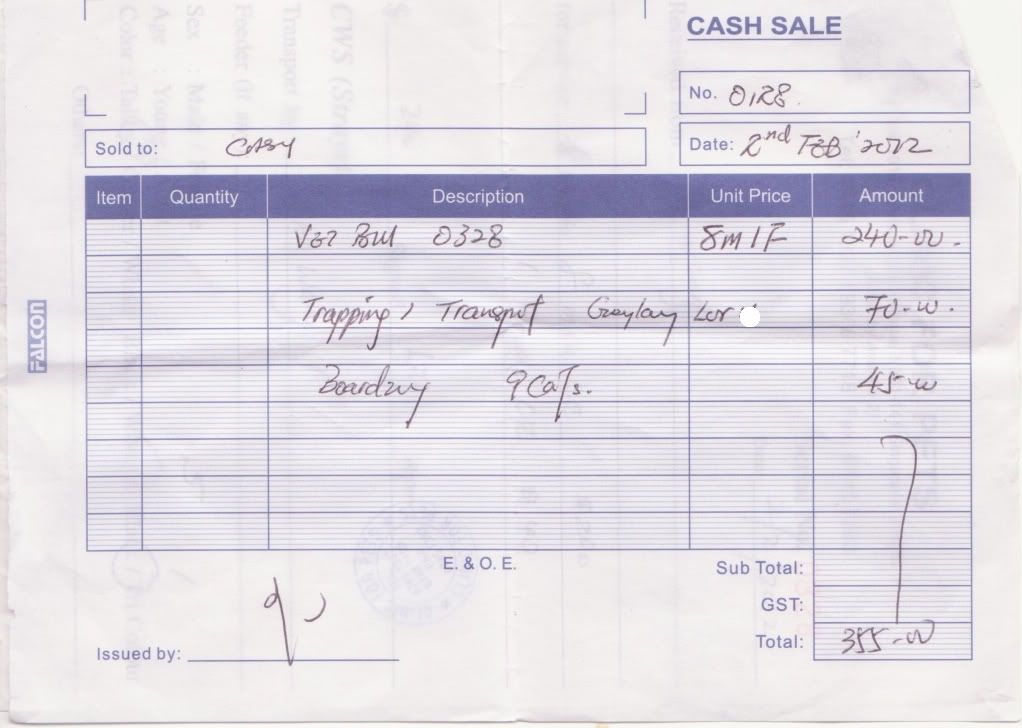 CASH SALE
No. 0128.
Sold to: CASY
Date: 2nd FEB '2012
Item Quantity Description Unit Price Amount
VET Bill 0328 8M1F 240-00.
Trapping / Transport Geylang Lor 70-00.
FALCON
Boarding 9 Cats. 45-00
E. & O. E.
Sub Total:
GST:
Total: 355-00
Issued by: